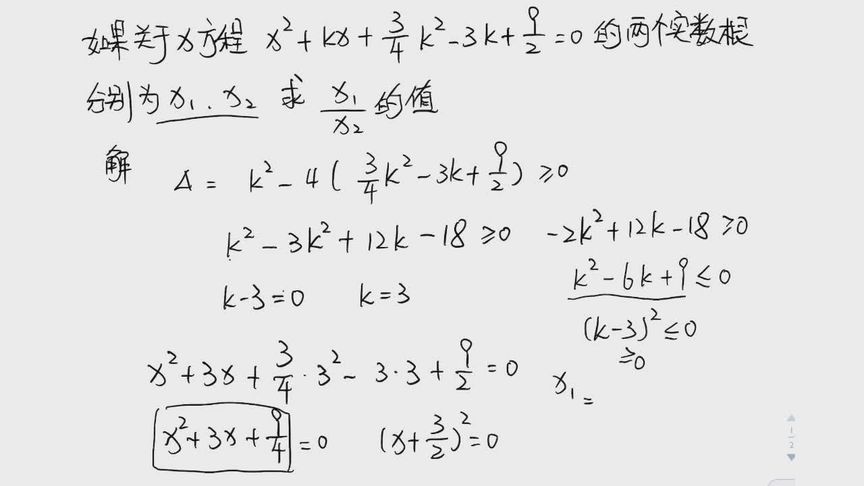 如果关于x方程 x²+kx+3/4k²-3k+9/2=0 的两个实数根
分别为x₁、x₂ 求 x₁/x₂ 的值
解 Δ= k²-4(3/4k²-3k+9/2)≥0
k²-3k²+12k-18≥0 -2k²+12k-18≥0
k²-6k+9≤0
k-3=0 k=3
(k-3)²≤0
≥0
x²+3x+3/4·3²-3·3+9/2=0 x₁=
x²+3x+9/4=0 (x+3/2)²=0
1/2